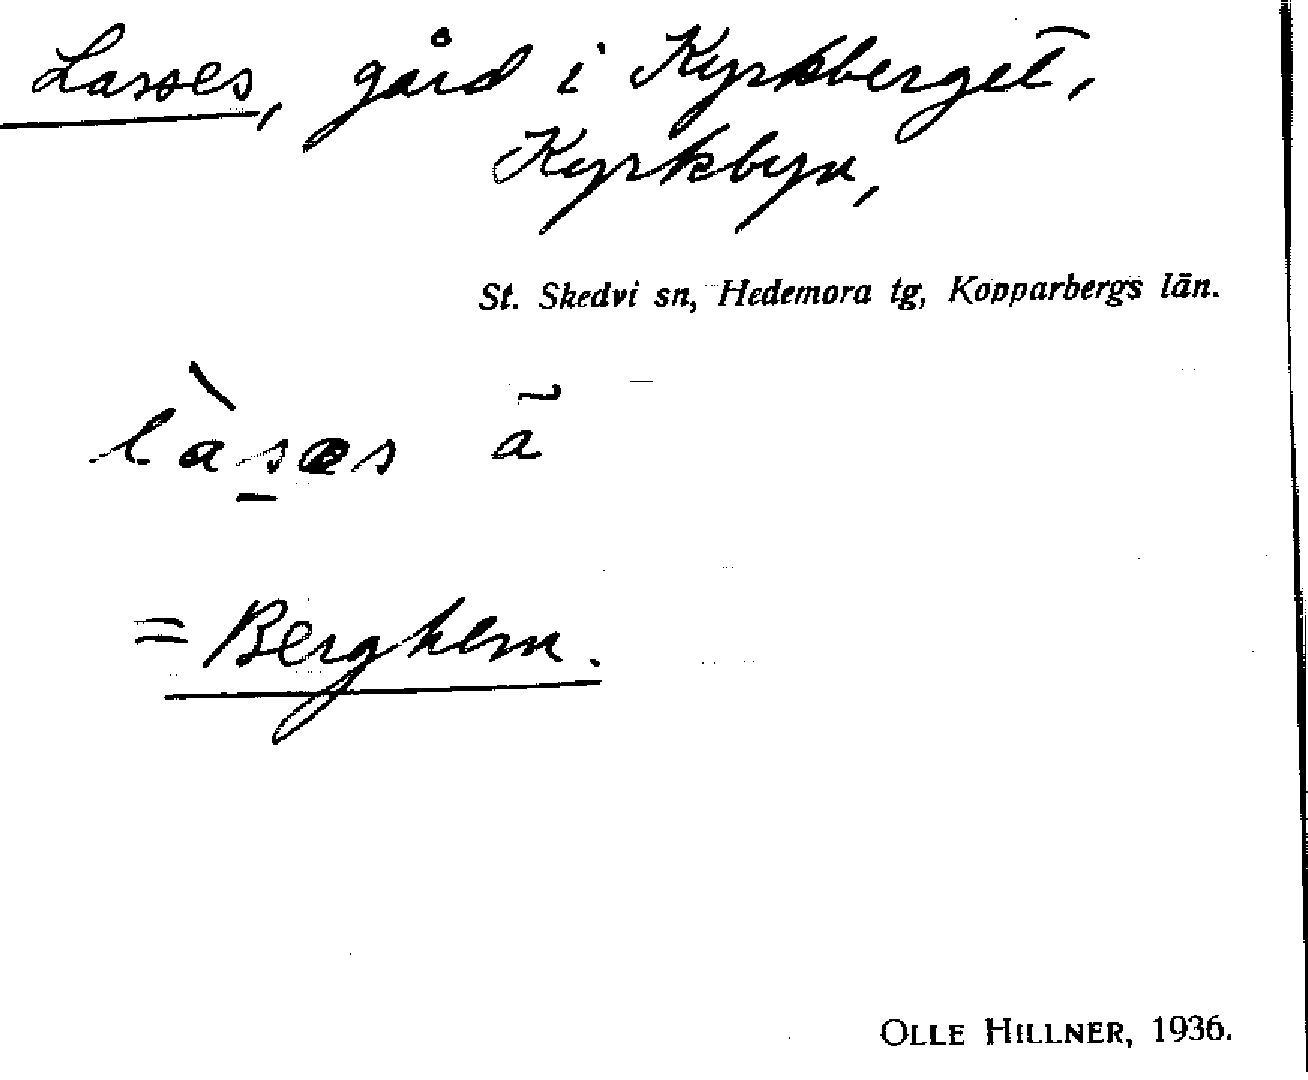 Lasses, gård i Kyrkberget,
Kyrkbyn,
St. Skedvi sn, Hedemora tg, Kopparbergs län.
làs̲æs ã
= Berghem.
OLLE HILLNER, 1936.